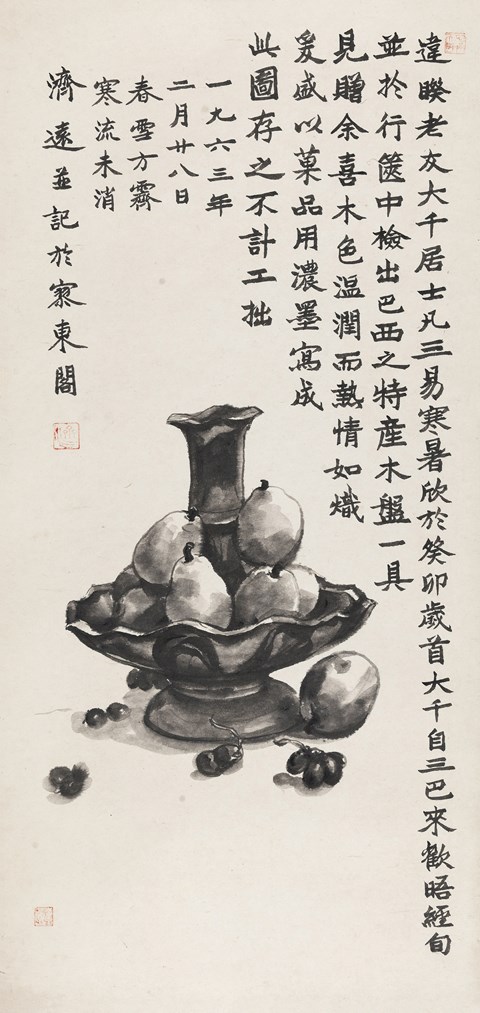 違睽老友大千居士凡三易寒暑欣於癸卯歲首大千自三巴來歡晤經旬
並於行篋中檢出巴西之特產木盤一具
見贈余喜木色温潤而熱情如熾
爰盛以菓品用濃墨寫成
此圖存之不計工拙
一九六三年
二月廿八日
春雪方霽
寒流未消
濟遠並記於寮東閣